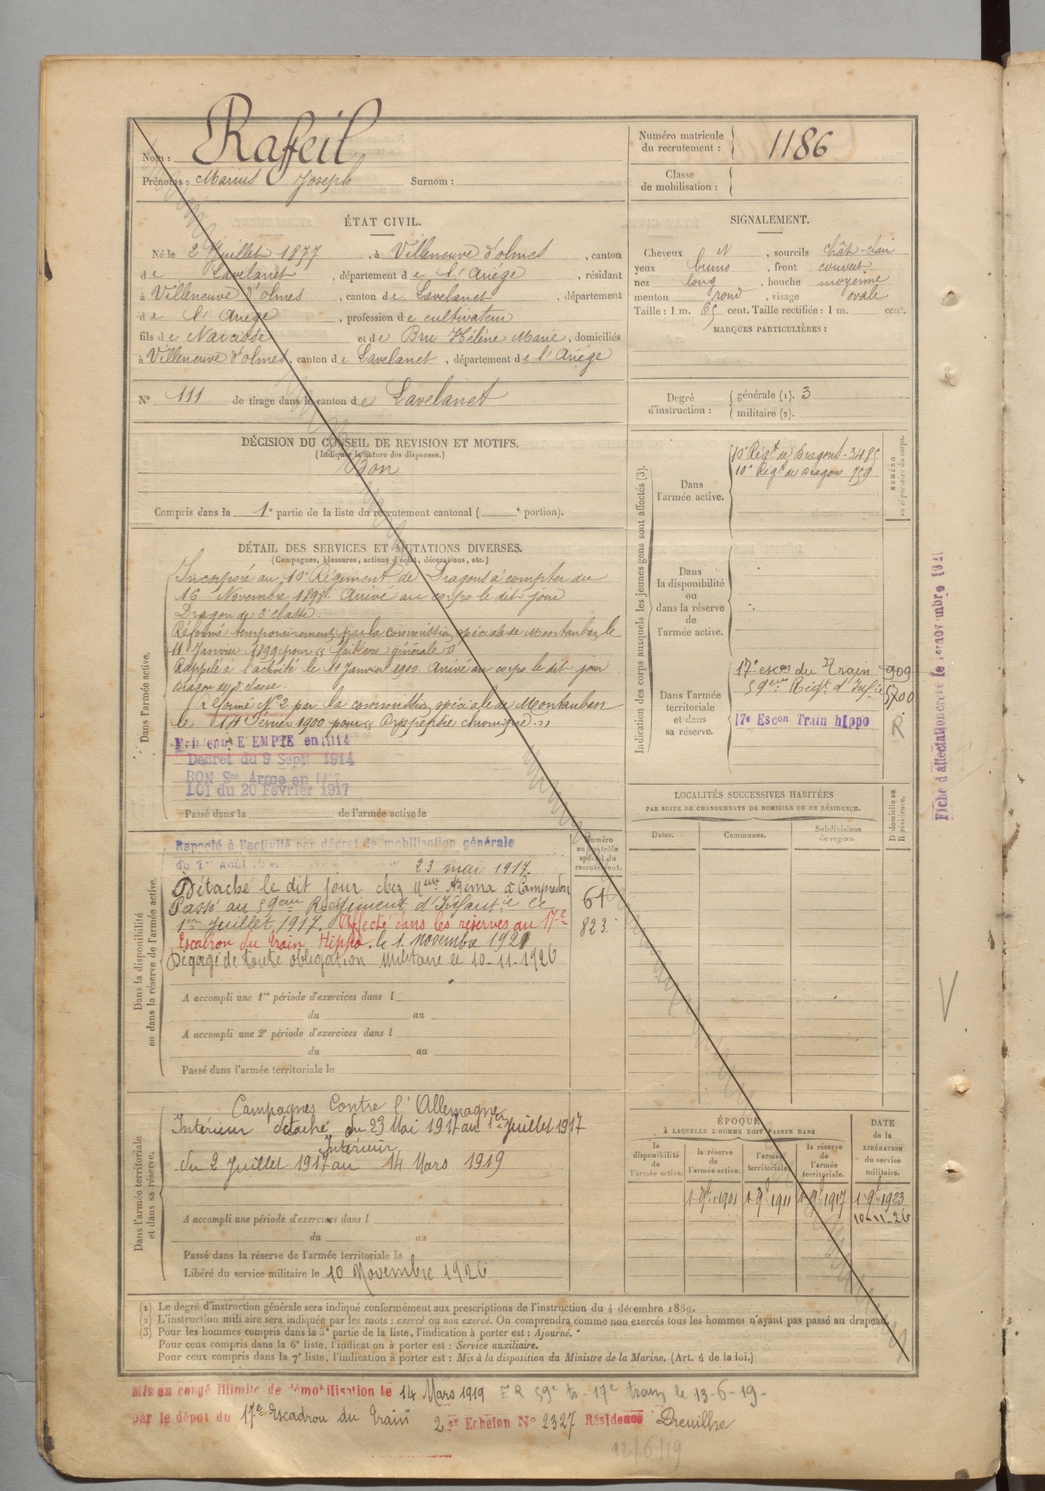 Nom : Raffeil
Prénoms : Marius Joseph Surnom :
Numéro matricule du recrutement : 1186
Classe de mobilisation :
ÉTAT CIVIL.
Né le 2 Juillet 1877, à Villeneuve d'olmes, canton
de Lavelanet, département de l'Ariège, résidant
à Villeneuve d'olmes, canton de Lavelanet, département
de l'Ariège, profession de cultivateur
fils de Narcisse et de Bru Hélène Marie, domiciliés
à Villeneuve d'olmes, canton de Lavelanet, département de l'Ariège
N° 111 de tirage dans le canton de Lavelanet
SIGNALEMENT.
Cheveux N, sourcils chât-clair
yeux bruns, front couvert
nez long, bouche moyenne
menton rond, visage ovale
Taille : 1 m. 65 cent. Taille rectifiée : 1 m. cent.
MARQUES PARTICULIÈRES :
Degré d'instruction : générale (1). 3
militaire (2).
DÉCISION DU CONSEIL DE REVISION ET MOTIFS.
(Indiquer la nature des dispenses.)
Bon
Compris dans la 1e partie de la liste du recrutement cantonal ( e portion).
DÉTAIL DES SERVICES ET MUTATIONS DIVERSES.
(Campagnes, blessures, actions d'éclat, décorations, etc.)
Dans l'armée active.
Incorporé au 10e Régiment de Dragons à compter du
16 Novembre 1898. Arrivé au corps le dit jour
Dragon de 2e classe.
Réformé temporairement par la commission spéciale de Montauban le
11 Janvier 1899 pour "faiblesse générale"
Rappelé à l'activité le 11 Janvier 1900 Arrivé au corps le dit jour
Dragon de 2e classe.
Réformé N°2 par la commission spéciale de Montauban
le Février 1900 pour "Dyspepsie chronique"
Maintenu EXEMPTE en 1914
Décret du 9 Sept 1914
BON Sce Armé en 1917
LOI du 20 Février 1917
Passé dans la de l'armée active le
Indication des corps auxquels les jeunes gens sont affectés (3).
NUMÉRO au répertoire du corps.
Dans l'armée active.
10e Régt de Dragons - 3485
10e Régt de Dragons 759
Dans la disponibilité ou dans la réserve de l'armée active.
Dans l'armée territoriale et dans sa réserve.
17e escon du Train 909
59eme Régt d'Infie 5700
17e Escon Train hippo R
Fiche d'affectation créée le 1er novembre 1921
LOCALITÉS SUCCESSIVES HABITÉES
PAR SUITE DE CHANGEMENTS DE DOMICILE OU DE RÉSIDENCE.
Dates. Communes. Subdivisions de région. D domicile ou R résidence.
Dans la disponibilité ou dans la réserve de l'armée active.
Numéro au contrôle spécial du recrutement.
Rappelé à l'activité par décret de mobilisation générale
du 1er Août 23 mai 1917.
Détaché le dit jour chez Mme Azema à Campredon
Passé au 59eme Régiment d'Infantie le
1er juillet 1917. Affecté dans les réserves au 17e
Escadron du Train Hippo. le 1. novembre 1921
Dégagé de toute obligation Militaire le 10-11-1926
61
823
A accompli une 1re période d'exercices dans l
du au
A accompli une 2e période d'exercices dans l
du au
Passé dans l'armée territoriale le
Dans l'armée territoriale et dans sa réserve.
Campagnes Contre l'Allemagne
Intérieur détaché du 23 Mai 1917 au 1er juillet 1917
Intérieur
du 2 Juillet 1917 au 14 Mars 1919
A accompli une période d'exercices dans l
du au
Passé dans la réserve de l'armée territoriale le
Libéré du service militaire le 10 Novembre 1926
ÉPOQUE
À LAQUELLE L'HOMME DOIT PASSER DANS
la disponibilité de l'armée active. la réserve de l'armée active. l'armée territoriale. la réserve de l'armée territoriale.
DATE de la LIBÉRATION du service militaire.
1 9bre 1901 1 9bre 1911 1 9bre 1917 1-9-1923
10-11-26
(1) Le degré d'instruction générale sera indiqué conformément aux prescriptions de l'instruction du 4 décembre 1889.
(2) L'instruction militaire sera indiquée par les mots : exercé ou non exercé. On comprendra comme non exercés tous les hommes n'ayant pas passé au drapeau.
(3) Pour les hommes compris dans la 5e partie de la liste, l'indication à porter est : Ajourné.
Pour ceux compris dans la 6e liste, l'indication à porter est : Service auxiliaire.
Pour ceux compris dans la 7e liste, l'indication à porter est : Mis à la disposition du Ministre de la Marine. (Art. 4 de la loi.)
Mis en congé illimité de démobilisation le 14 Mars 1919 59e 17e train le 13-6-19-
par le dépot du 17e Escadron du Train 2er Echelon N° 2327 Résidence Dreuilhe
12/6/19